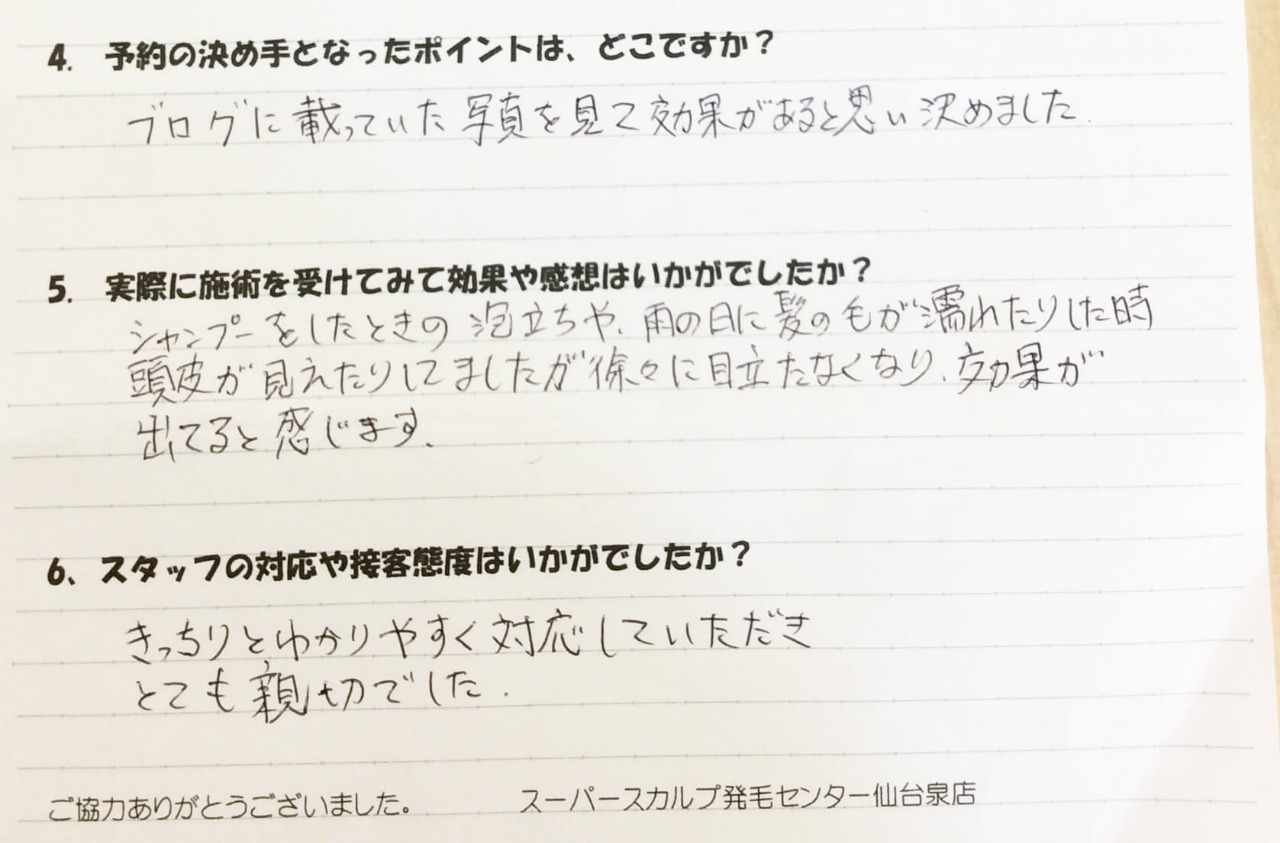 4. 予約の決め手となったポイントは、どこですか？
ブログに載っていた写真を見て効果があると思い決めました.
5. 実際に施術を受けてみて効果や感想はいかがでしたか？
シャンプーをしたときの泡立ちや、雨の日に髪の毛が濡れたりした時
頭皮が見えたりしてましたが徐々に目立たなくなり、効果が
出てると感じます.
6、スタッフの対応や接客態度はいかがでしたか？
きっちりとわかりやすく対応していただき
とても親切でした.
ご協力ありがとうございました。 スーパースカルプ発毛センター仙台泉店